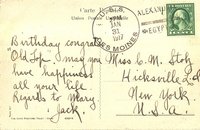 Carte Postale
DES MOINES
JAN
31
1917
ALEXAN
EGYP
Birthday congrats
"Old Top". I may you
have happiness
all your life.
Regards to Mary
Jack.
Miss C. M. Stolz
Hicksville
New York
U.S.A.